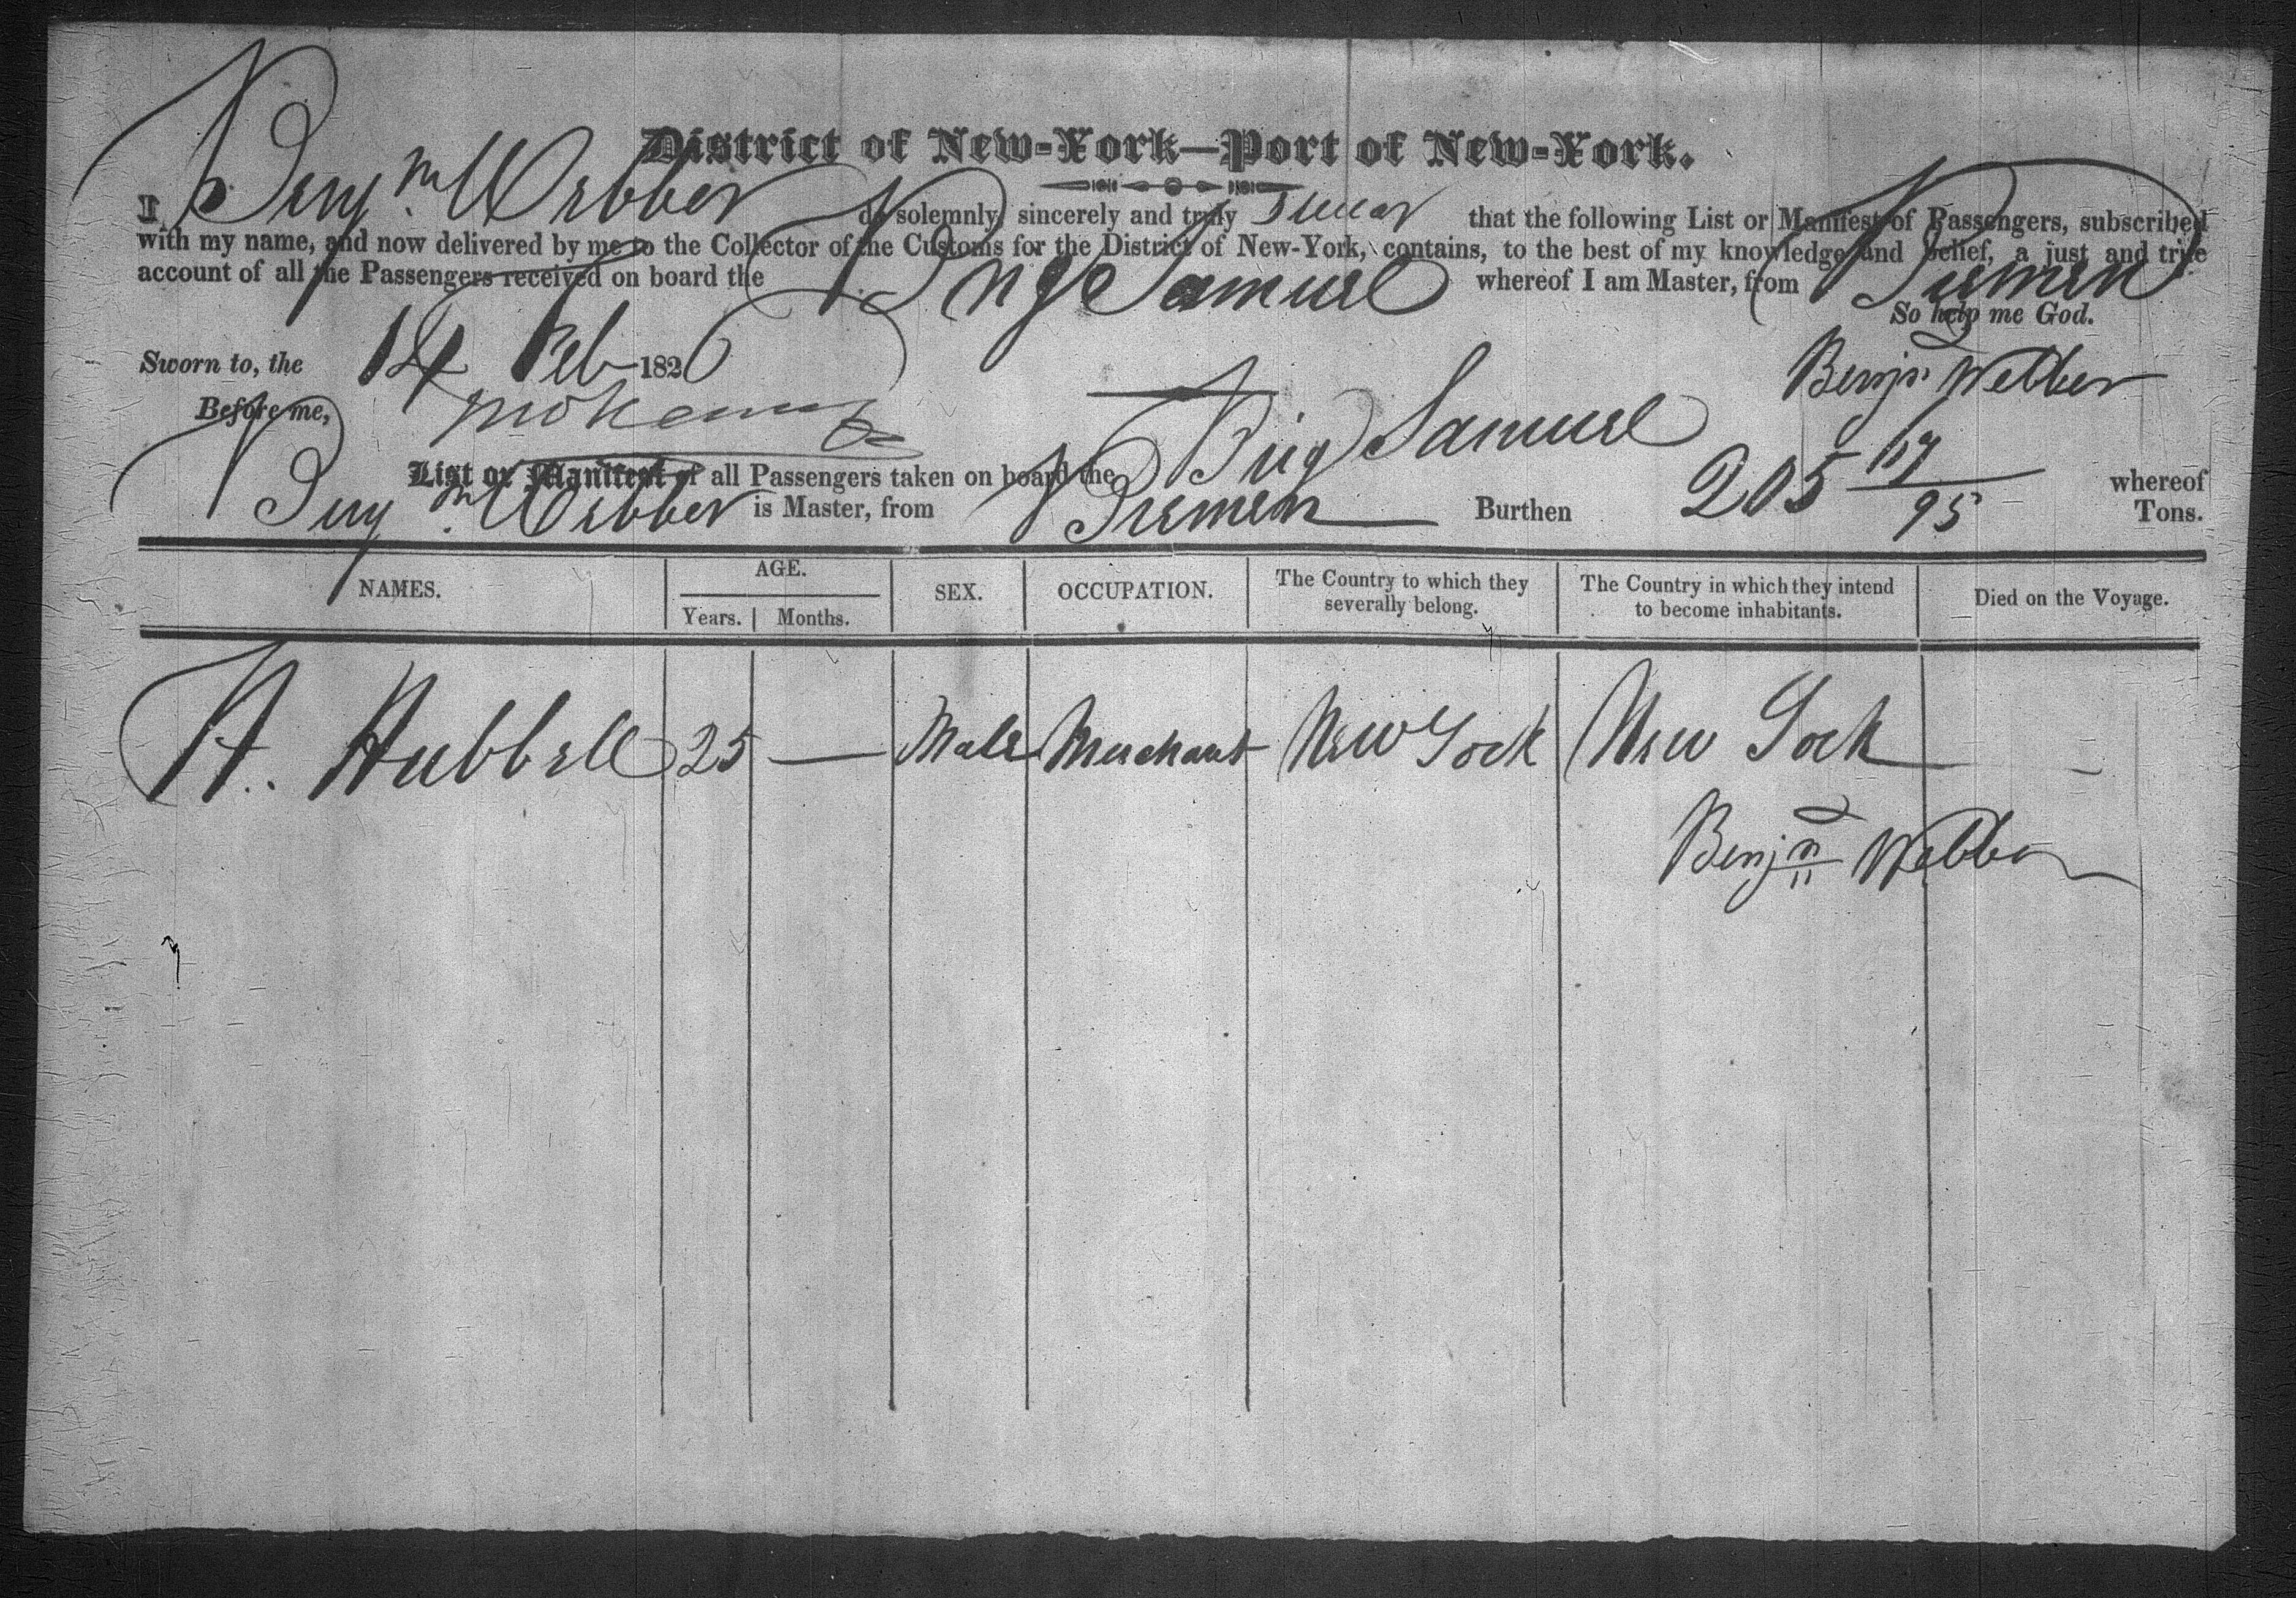 District of New-York—Port of New-York.
I Benjm Webber do solemnly, sincerely and truly Swear that the following List or Manifest of Passengers, subscribed
with my name, and now delivered by me to the Collector of the Customs for the District of New-York, contains, to the best of my knowledge and belief, a just and true
account of all the Passengers received on board the Brig Samuel whereof I am Master, from Bremen
So help me God.
Sworn to, the 14 Feb 1826 Benjn Webber
Before me,
List or Manifest of all Passengers taken on board the Brig Samuel whereof
Benjm Webber is Master, from Bremen Burthen 205 17/95 Tons.
NAMES. AGE. Years. Months. SEX. OCCUPATION. The Country to which they severally belong. The Country in which they intend to become inhabitants. Died on the Voyage.
A. Hubbell 25 — Male Merchant New York New York —
Benjn Webber